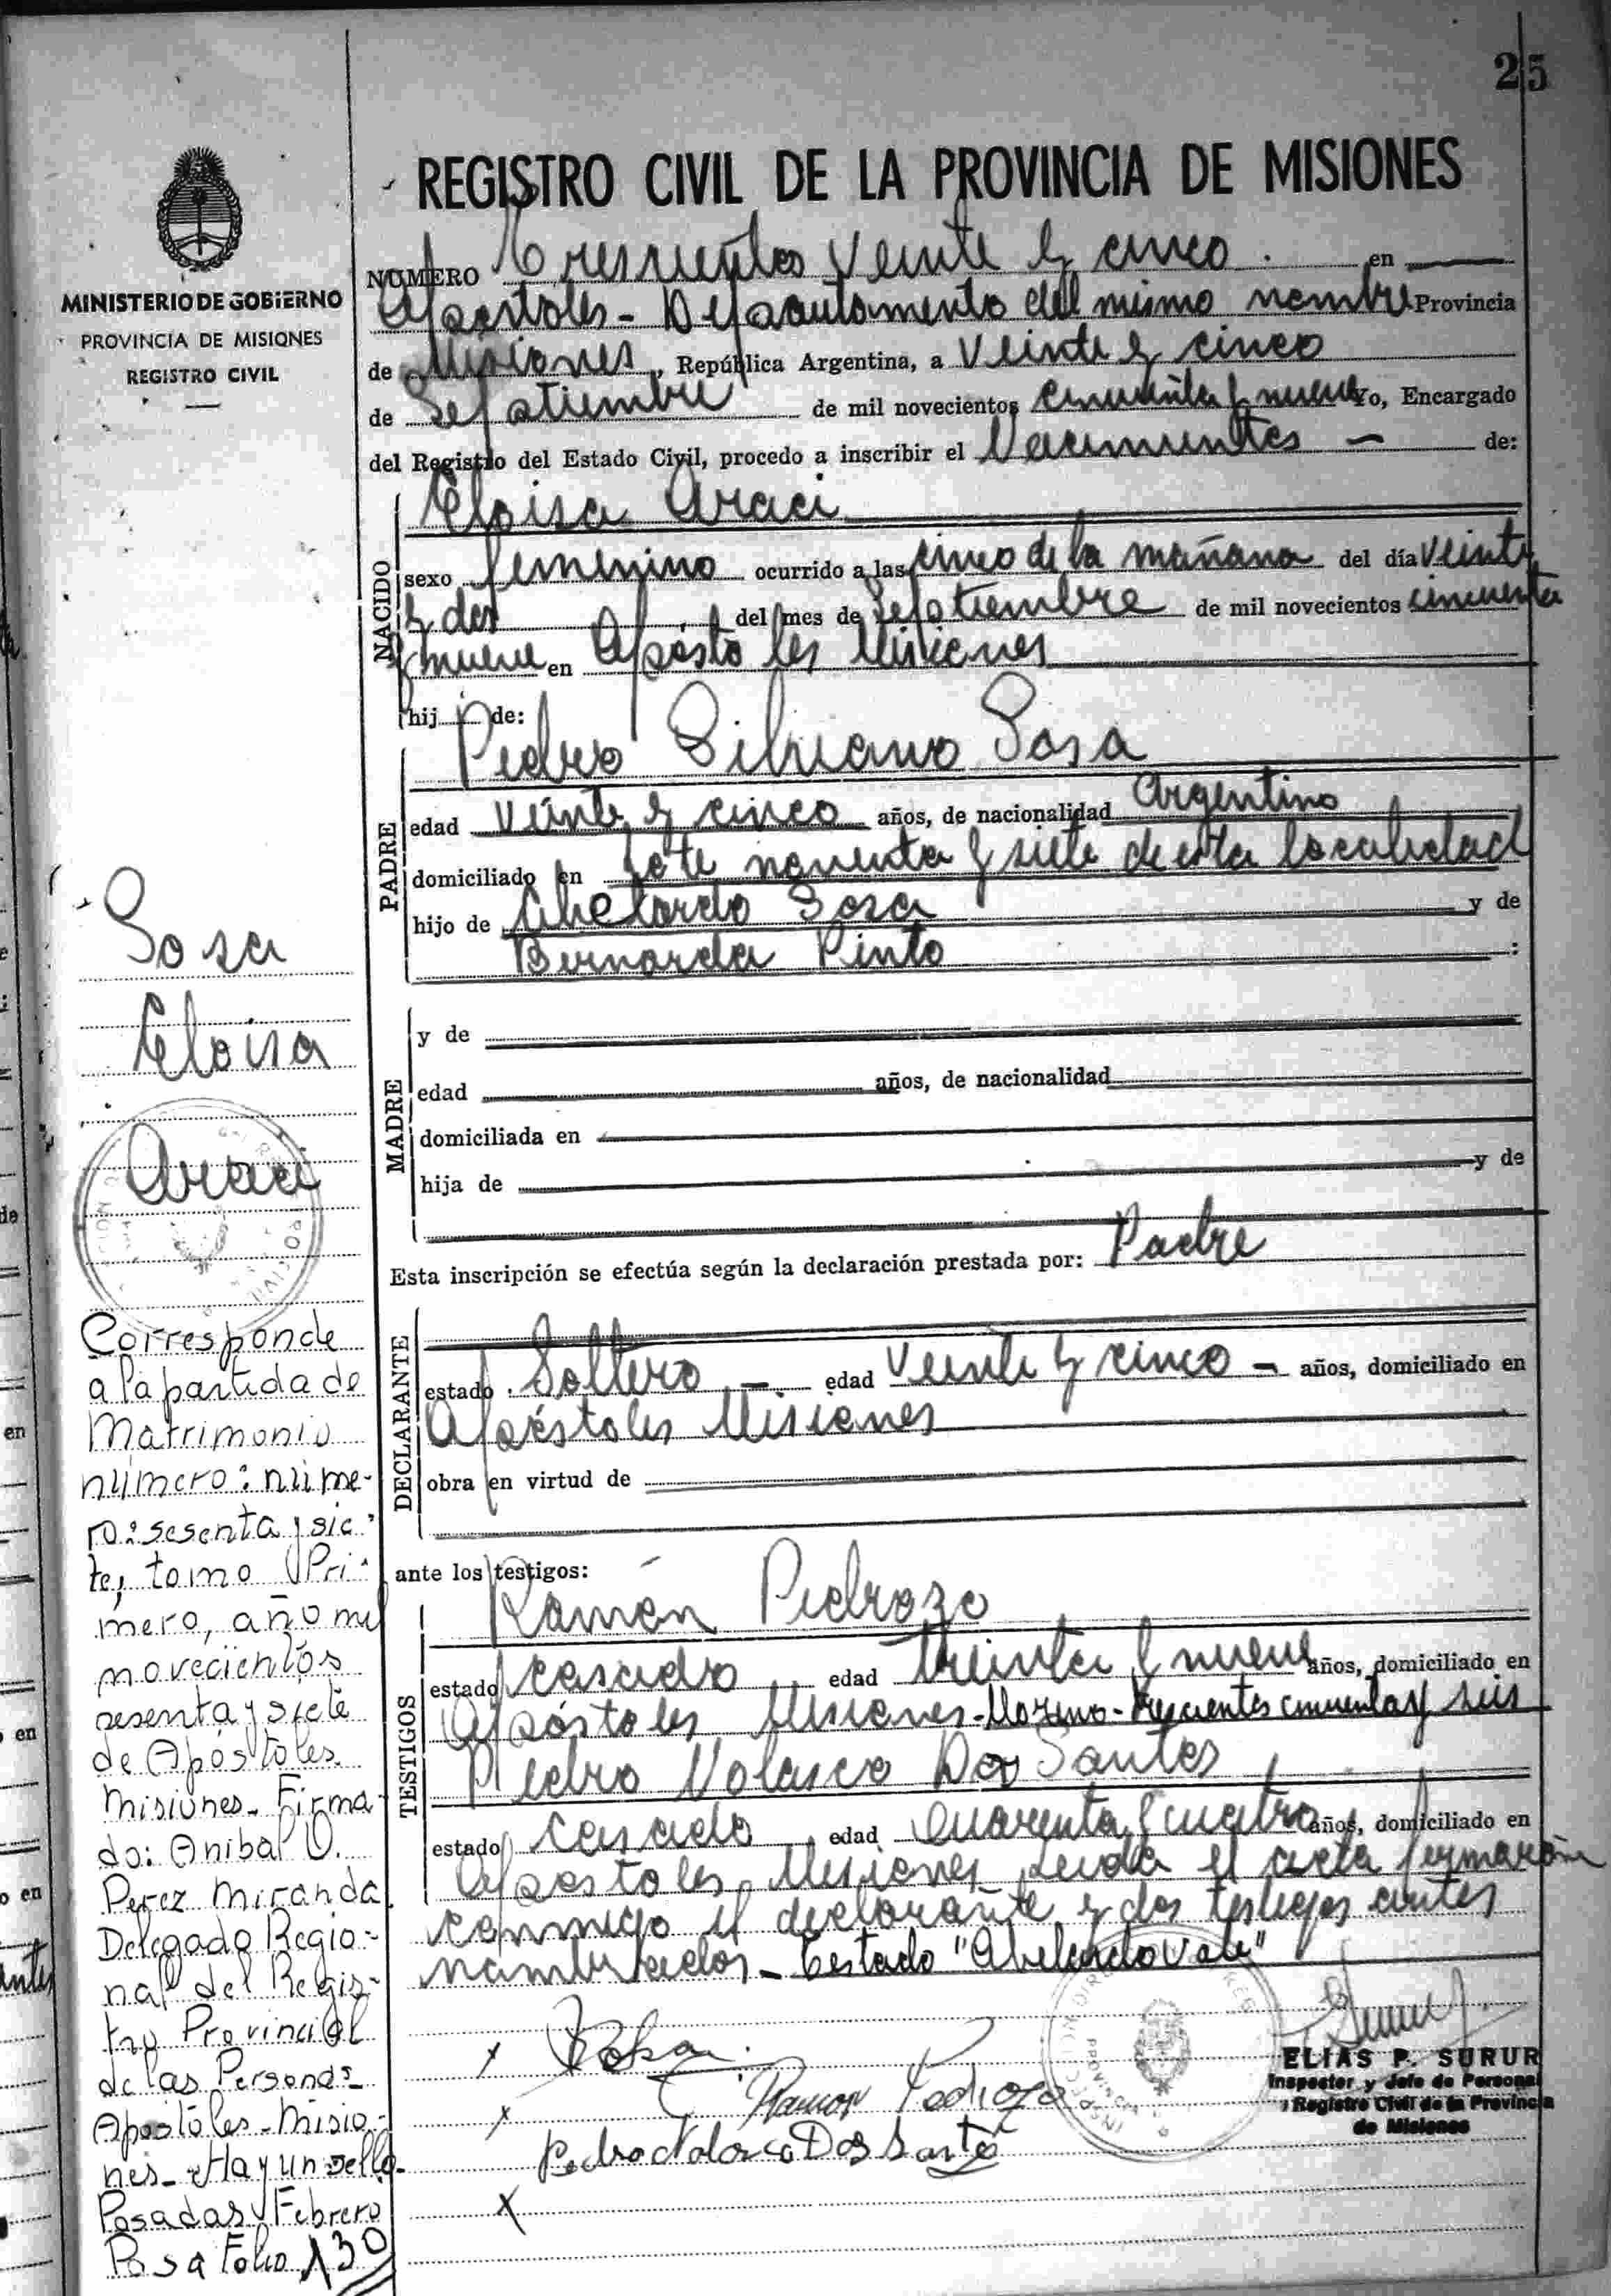 25
REGISTRO CIVIL DE LA PROVINCIA DE MISIONES
MINISTERIO DE GOBIERNO
PROVINCIA DE MISIONES
REGISTRO CIVIL
NÚMERO Trescientos Veinte y cinco . en
Apóstoles - Departamento del mismo nombre Provincia
de Misiones, República Argentina, a Veinte y cinco
de Septiembre de mil novecientos cincuenta y nueve Yo, Encargado
del Registro del Estado Civil, procedo a inscribir el Nacimientos - de:
NACIDO
Eloisa Araci
sexo femenino ocurrido a las cinco de la mañana del día Veinte
y dos del mes de Septiembre de mil novecientos cincuenta
y nueve en Apóstoles Misiones
hij de:
PADRE
Pedro Silviano Sosa
edad Veinte y cinco años, de nacionalidad Argentino
domiciliado en Lote noventa y siete de esta localidad
hijo de Abelardo Sosa y de
Bernarda Pinto :
MADRE
y de
edad años, de nacionalidad
domiciliada en
hija de y de
Esta inscripción se efectúa según la declaración prestada por: Padre
DECLARANTE
estado Soltero - edad Veinte y cinco - años, domiciliado en
Apóstoles Misiones
obra en virtud de
ante los testigos:
TESTIGOS
Ramón Pedrozo
estado casado edad treinta y nueve años, domiciliado en
Apóstoles Misiones - - trescientos cincuenta y seis
Pedro Nolasco Dos Santos
estado casado edad cuarenta y cuatro años, domiciliado en
Apóstoles Misiones Leida el acta firmaron
conmigo el declarante y dos testigos antes
nombrados - Testado "Abelardo Vale"
Sosa
Ramon Pedrozo
Pedro Nolasco Dos Santos
ELIAS P. SURUR
Inspector y Jefe de Personal
Registro Civil de la Provincia
de Misiones
Sosa
Eloisa
Araci
Corresponde
a la partida de
Matrimonio
número: núme-
ro: sesenta y sie-
te, tomo Pri-
mero, año mil
novecientos
sesenta y siete
de Apóstoles
Misiones - Firma-
do: Anibal O.
Perez Miranda
Delegado Regio-
nal del Regis-
tro Provincial
de las Personas
Apostoles - Misio-
nes - Hay un sello -
Posadas, Febrero
Pasa Folio 130